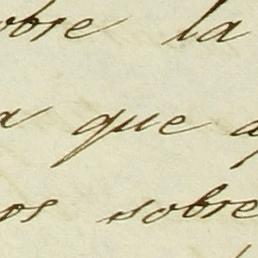 obre la
a que a
os sobre